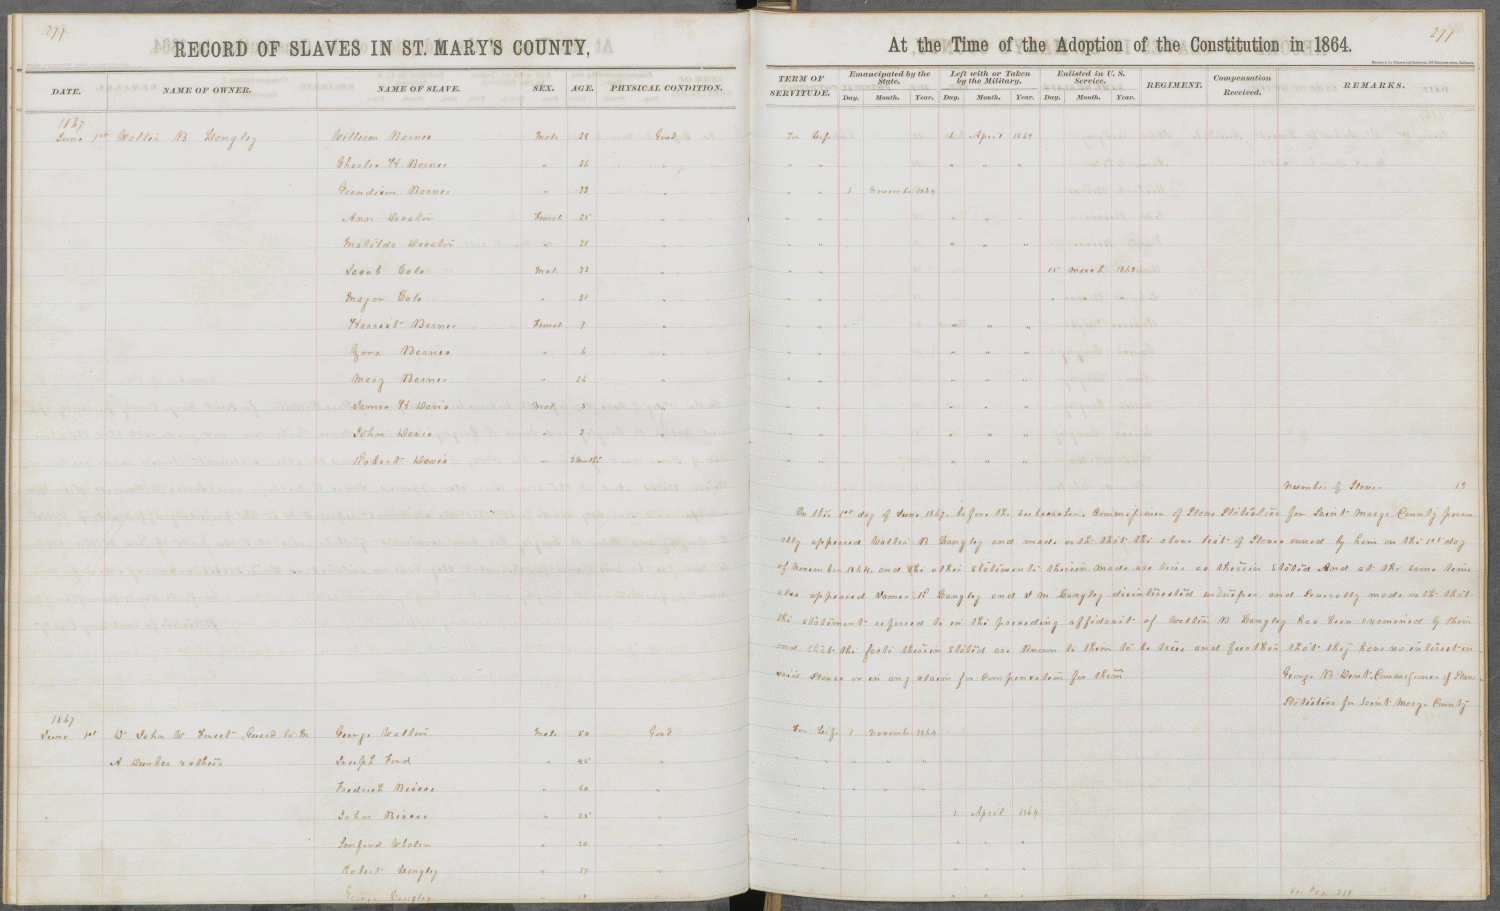 277
RECORD OF SLAVES IN ST. MARY'S COUNTY,
DATE. NAME OF OWNER. NAME OF SLAVE. SEX. AGE. PHYSICAL CONDITION.
1867
June 1st Walter B Langley William Barnes Male 38 Good
Charles H Barnes "
Grandison Barnes " 33 "
Ann Female 25 "
Matilda " 21 "
Jacob Cole Male 23 "
Major Cole " 21 "
Harriet Barnes Female 7 "
Barnes " 6 "
Mary Barnes "
James H Davis Male 5 "
John Davis " "
Robert Davis 3 Months
1867
June 1st Dr John W Forrest Guard to M George Walton Male 50 Good
A Dunbar & others Joseph Ford " 45 "
Fredrick Biscoe " 60 "
John Biscoe " 25 "
Sanford Whalen " 20 "
Robert Langley " "
George Langley
277
At the Time of the Adoption of the Constitution in 1864.
TERM OF SERVITUDE. Emancipated by the State. Left with or Taken by the Military. Enlisted in U. S. Service. REGIMENT. Compensation Received. REMARKS.
Day. Month. Year. Day. Month. Year. Day. Month. Year.
For Life 1 April 1864
" " " " "
" " 1 November 1864
" " " " "
" " " " "
" " 15 March 1864
" " " " "
" " " " "
" " " " "
" " " " "
" " " " "
" " " " "
" " " " "
Number of Slaves 13
On this 1st day of June 1867, before the subscriber, Commissioner of Slave Statistics for Saint Marys County person-
ally appeared Walter B Langley and made oath that the above list of Slaves owned by him on the 1st day
of November 1864, and the other statements therein made are true as therein stated And at the same time
also appeared James H Langley and J M Langley disinterested witnesses and severally made oath that
the statement referred to in the preceding affidavit of Walter B Langley has been examined by them
and that the facts therein stated are known to them to be true and further that they have no interest in
said Slaves or in any claim for compensation for them George B Dent. Commissioner of Slave
Statistics for Saint Marys County
For Life 1 November 1864
" " " " "
" " " " "
" " 1 April 1864
" " " " "
" " " " "